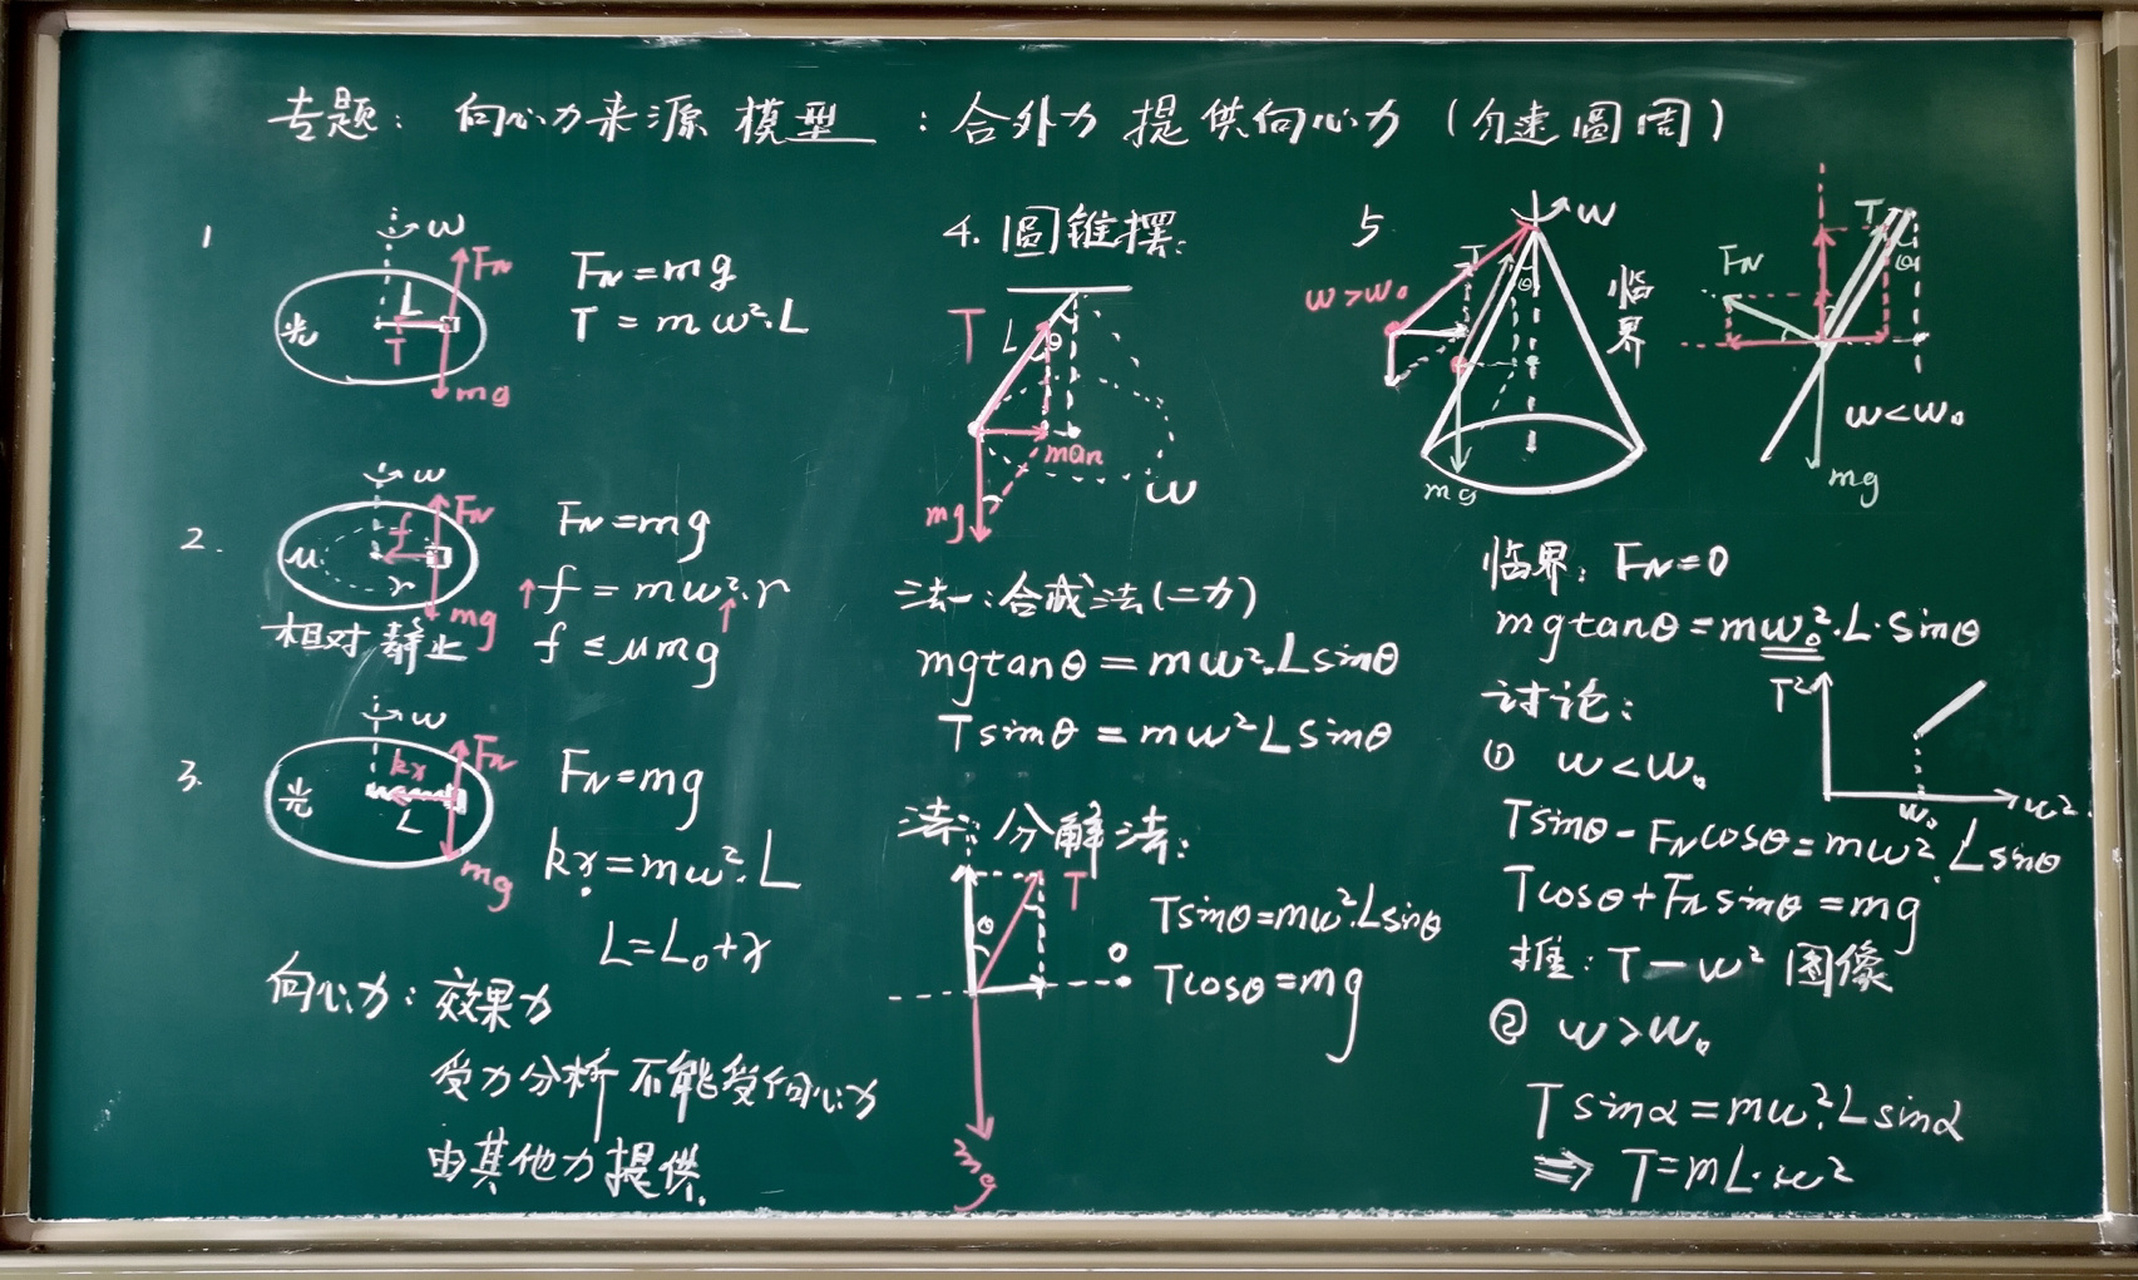 专题：向心力来源模型：合外力提供向心力（匀速圆周）
1
ω
FN
L
光
T
mg
FN=mg
T=mω²·L
2.
ω
FN
f
μ
r
mg
相对静止
FN=mg
↑f=mω²·r↑
f≤μmg
3.
ω
FN
kx
光
L
mg
FN=mg
kx=mω²·L
L=L₀+x
向心力：效果力
受力分析不能受向心力
由其他力提供.
4.圆锥摆：
T
L
θ
man
mg
ω
法一：合成法(二力)
mgtanθ=mω²·Lsinθ
Tsinθ=mω²Lsinθ
法二：分解法：
T
θ
O
mg
Tsinθ=mω²·Lsinθ
Tcosθ=mg
5
ω
T
θ
ω>ω₀
临界
mg
T
FN
θ
ω<ω₀
mg
临界：FN=0
mgtanθ=mω₀²·L·sinθ
讨论：
T²
ω₀
ω²
① ω<ω₀
Tsinθ-FNcosθ=mω²·Lsinθ
Tcosθ+FNsinθ=mg
推：T-ω²图像
② ω>ω₀
Tsinα=mω²·Lsinα
⇒ T=mL·ω²